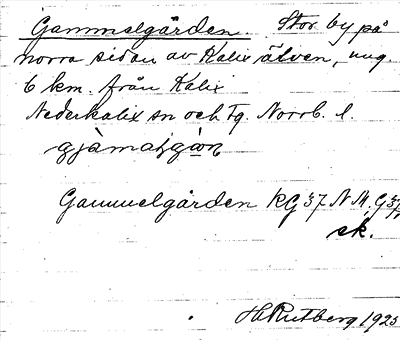 Gammelgården. Stor by på
norra sidan av Kalix älven, ung.
6 km. från Kalix
Nederkalix sn och tg. Norrb. l.
Gammelgården KG 37 N M. G 37
sk.
H Rutberg 1923